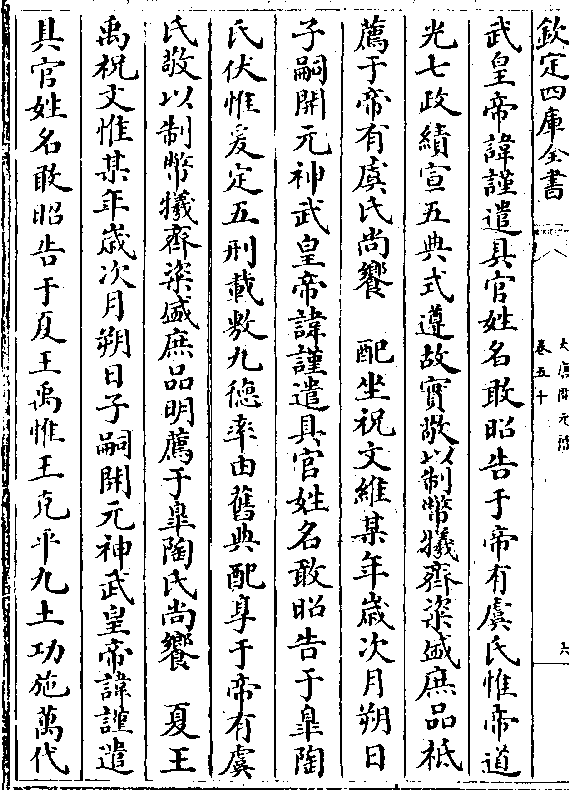 欽定四庫全書
大唐開元禮
卷五十
六
武皇帝諱謹遣具官姓名敢昭告于帝有虞氏惟帝道
光七政績宣五典式遵故實敬以制幣犧齊粢盛庶品祗
薦于帝有虞氏尚饗　配坐祝文維某年歲次月朔日
子嗣開元神武皇帝諱謹遣具官姓名敢昭告于臯陶
氏伏惟爰定五刑載敷九德率由舊典配享于帝有虞
氏敬以制幣犧齊粢盛庶品明薦于臯陶氏尚饗　夏王
禹祝文惟某年歲次月朔日子嗣開元神武皇帝諱謹遣
具官姓名敢昭告于夏王禹惟王克平九土功施萬代